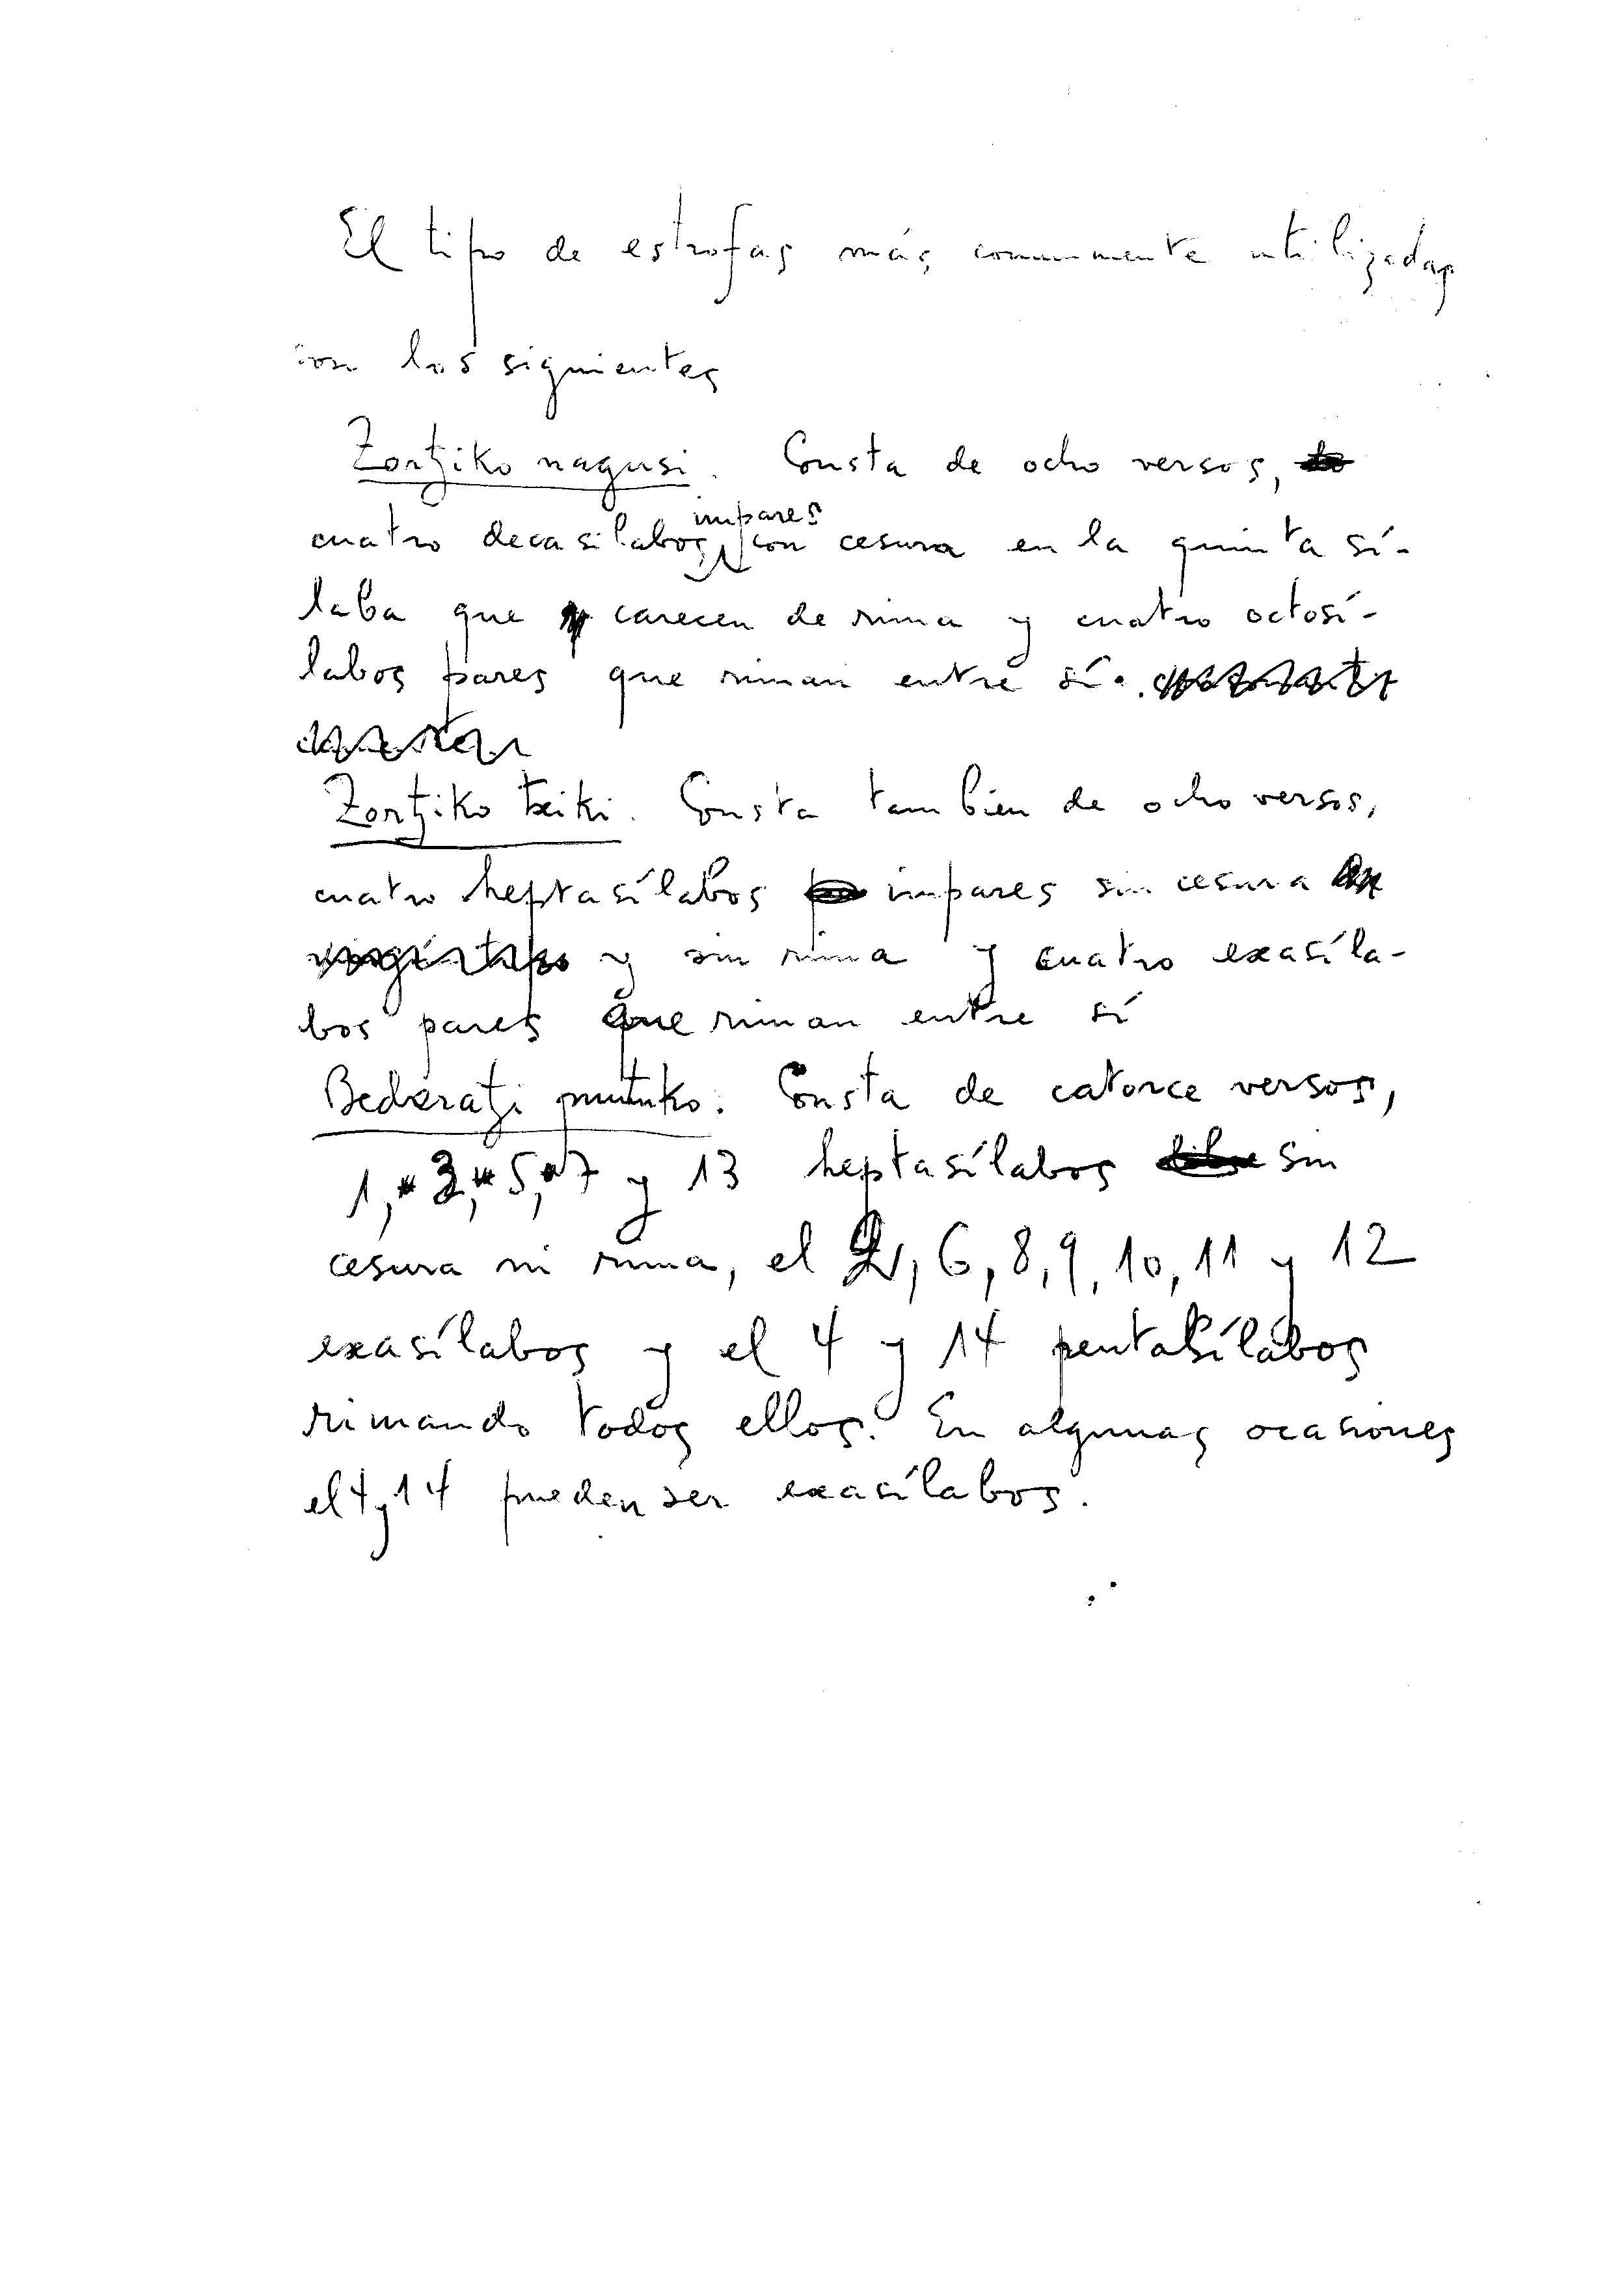 El tipo de estrofas más comunmente utilizadas
son los siguientes
Zortziko nagusi. Consta de ocho versos,
cuatro decasilabos, impares con cesura en la quinta sí-
laba que carecen de rima y cuatro octosí-
labos pares que riman entre sí.
Zortziko txiki. Consta también de ocho versos,
cuatro heptasílabos impares sin cesura
y sin rima y cuatro exasíla-
bos pares que riman entre sí
Bederatzi puntuko. Consta de catorce versos,
1, 3, 5, 7 y 13 heptasílabos sin
cesura ni rima, el 2, 6, 8, 9, 10, 11 y 12
exasílabos y el 4 y 14 pentasílabos
rimando todos ellos. En algunas ocasiones
el 4 y 14 pueden ser exasílabos.